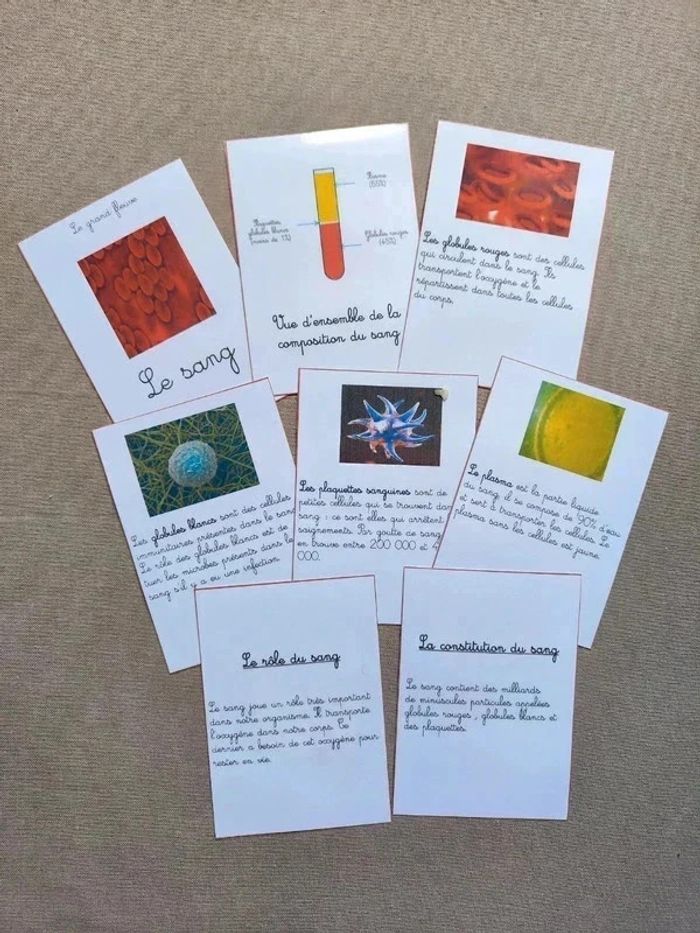 Le grand fleuve
Le sang
Plasma
(55%)
Plaquettes
globules blancs
(moins de 1%)
Globules rouges
(45%)
Vue d'ensemble de la
composition du sang
Les globules rouges sont des cellules
qui circulent dans le sang. Ils
transportent l'oxygène et le
répartissent dans toutes les cellules
du corps.
Les globules blancs sont des cellules
immunitaires présentes dans le sang
Le rôle des globules blancs est de
tuer les microbes présents dans le
sang s'il y a eu une infection.
Les plaquettes sanguines sont de
petites cellules qui se trouvent dan
sang : ce sont elles qui arrêtent
saignements. Par goutte ce sang
en trouve entre 200 000 et 4
000.
Le plasma est la partie liquide
du sang il se compose de 90% d'eau
et sert à transporter les cellules. Le
plasma sans les cellules est jaune.
Le rôle du sang
Le sang joue un rôle très important
dans notre organisme. Il transporte
l'oxygène dans notre corps. Ce
dernier a besoin de cet oxygène pour
rester en vie.
La constitution du sang
Le sang contient des milliards
de minuscules particules appelées
globules rouges, globules blancs et
des plaquettes.